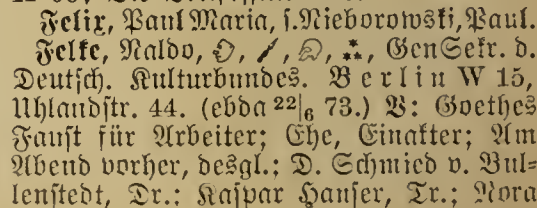 Felix, Paul Maria, s. Nieborowski, Paul.
Felke, Naldo, GenSekr. d.
Deutsch. Kulturbundes. Berlin W 15,
Uhlandstr. 44. (ebda 22|6 73.) V: Goethes
Faust für Arbeiter; Ehe, Einakter; Am
Abend vorher, desgl.; D. Schmied v. Bul-
lenstedt, Dr.; Kaspar Hauser, Tr.; Nora